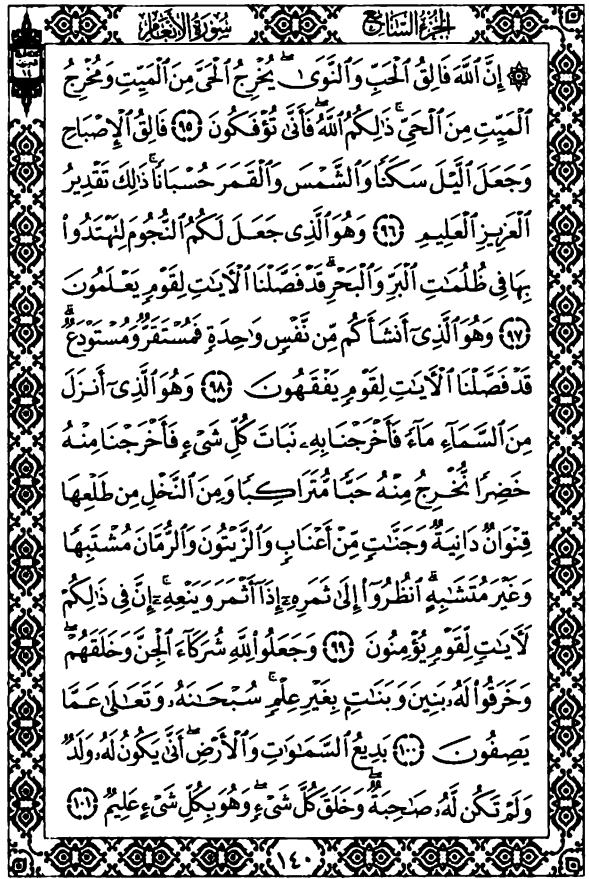 سُورَةُ الأَنْعَامِ
الجُزْءُ السَّابِعُ
۞ إِنَّ ٱللَّهَ فَالِقُ ٱلْحَبِّ وَٱلنَّوَىٰ ۖ يُخْرِجُ ٱلْحَيَّ مِنَ ٱلْمَيِّتِ وَمُخْرِجُ
ٱلْمَيِّتِ مِنَ ٱلْحَيِّ ۚ ذَٰلِكُمُ ٱللَّهُ ۖ فَأَنَّىٰ تُؤْفَكُونَ ٩٥ فَالِقُ ٱلْإِصْبَاحِ
وَجَعَلَ ٱلَّيْلَ سَكَنًا وَٱلشَّمْسَ وَٱلْقَمَرَ حُسْبَانًا ۚ ذَٰلِكَ تَقْدِيرُ
ٱلْعَزِيزِ ٱلْعَلِيمِ ٩٦ وَهُوَ ٱلَّذِى جَعَلَ لَكُمُ ٱلنُّجُومَ لِتَهْتَدُوا۟
بِهَا فِى ظُلُمَٰتِ ٱلْبَرِّ وَٱلْبَحْرِ ۗ قَدْ فَصَّلْنَا ٱلْءَايَٰتِ لِقَوْمٍ يَعْلَمُونَ
٩٧ وَهُوَ ٱلَّذِىٓ أَنشَأَكُم مِّن نَّفْسٍ وَٰحِدَةٍ فَمُسْتَقَرٌّ وَمُسْتَوْدَعٌ ۗ
قَدْ فَصَّلْنَا ٱلْءَايَٰتِ لِقَوْمٍ يَفْقَهُونَ ٩٨ وَهُوَ ٱلَّذِىٓ أَنزَلَ
مِنَ ٱلسَّمَآءِ مَآءً فَأَخْرَجْنَا بِهِۦ نَبَاتَ كُلِّ شَىْءٍ فَأَخْرَجْنَا مِنْهُ
خَضِرًا نُّخْرِجُ مِنْهُ حَبًّا مُّتَرَاكِبًا وَمِنَ ٱلنَّخْلِ مِن طَلْعِهَا
قِنْوَانٌ دَانِيَةٌ وَجَنَّٰتٍ مِّنْ أَعْنَابٍ وَٱلزَّيْتُونَ وَٱلرُّمَّانَ مُشْتَبِهًا
وَغَيْرَ مُتَشَٰبِهٍ ۗ ٱنظُرُوٓا۟ إِلَىٰ ثَمَرِهِۦٓ إِذَآ أَثْمَرَ وَيَنْعِهِۦٓ ۚ إِنَّ فِى ذَٰلِكُمْ
لَءَايَٰتٍ لِّقَوْمٍ يُؤْمِنُونَ ٩٩ وَجَعَلُوا۟ لِلَّهِ شُرَكَآءَ ٱلْجِنَّ وَخَلَقَهُمْ ۖ
وَخَرَقُوا۟ لَهُۥ بَنِينَ وَبَنَٰتٍۭ بِغَيْرِ عِلْمٍ ۚ سُبْحَٰنَهُۥ وَتَعَٰلَىٰ عَمَّا
يَصِفُونَ ١٠٠ بَدِيعُ ٱلسَّمَٰوَٰتِ وَٱلْأَرْضِ ۖ أَنَّىٰ يَكُونُ لَهُۥ وَلَدٌ
وَلَمْ تَكُن لَّهُۥ صَٰحِبَةٌ ۖ وَخَلَقَ كُلَّ شَىْءٍ ۖ وَهُوَ بِكُلِّ شَىْءٍ عَلِيمٌ ١٠١
١٤٠